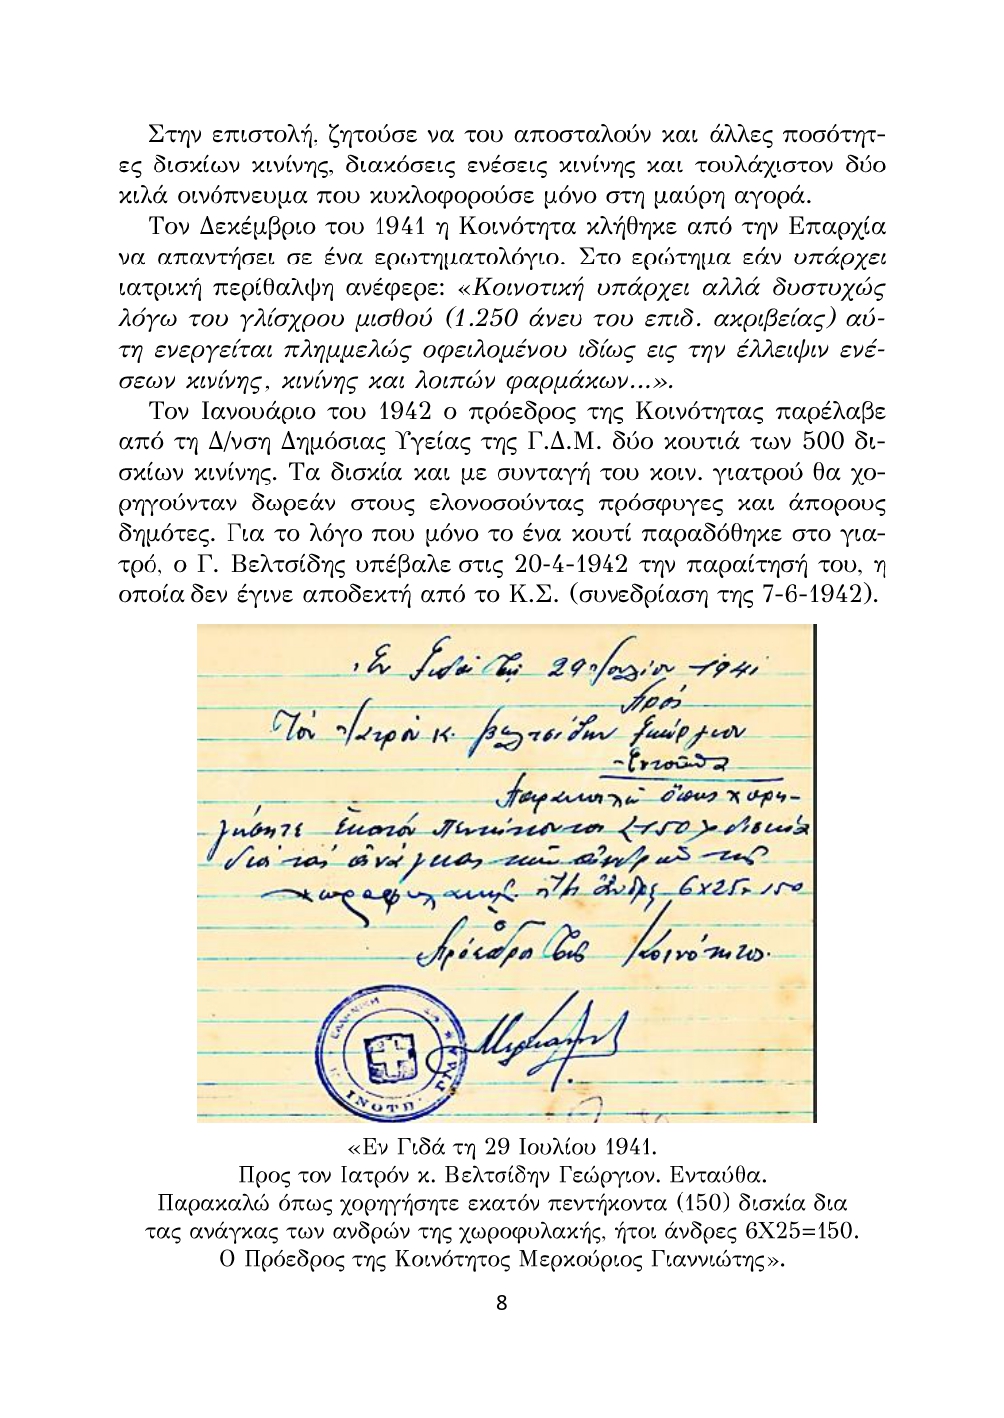 Στην επιστολή, ζητούσε να του αποσταλούν και άλλες ποσότητ-
ες δισκίων κινίνης, διακόσεις ενέσεις κινίνης και τουλάχιστον δύο
κιλά οινόπνευμα που κυκλοφορούσε μόνο στη μαύρη αγορά.
Τον Δεκέμβριο του 1941 η Κοινότητα κλήθηκε από την Επαρχία
να απαντήσει σε ένα ερωτηματολόγιο. Στο ερώτημα εάν υπάρχει
ιατρική περίθαλψη ανέφερε: «Κοινοτική υπάρχει αλλά δυστυχώς
λόγω του γλίσχρου μισθού (1.250 άνευ του επιδ. ακριβείας) αύ-
τη ενεργείται πλημμελώς οφειλομένου ιδίως εις την έλλειψιν ενέ-
σεων κινίνης, κινίνης και λοιπών φαρμάκων...».
Τον Ιανουάριο του 1942 ο πρόεδρος της Κοινότητας παρέλαβε
από τη Δ/νση Δημόσιας Υγείας της Γ.Δ.Μ. δύο κουτιά των 500 δι-
σκίων κινίνης. Τα δισκία και με συνταγή του κοιν. γιατρού θα χο-
ρηγούνταν δωρεάν στους ελονοσούντας πρόσφυγες και άπορους
δημότες. Για το λόγο που μόνο το ένα κουτί παραδόθηκε στο για-
τρό, ο Γ. Βελτσίδης υπέβαλε στις 20-4-1942 την παραίτησή του, η
οποία δεν έγινε αποδεκτή από το Κ.Σ. (συνεδρίαση της 7-6-1942).
Ἐν Γιδᾷ τῇ 29 Ἰουλίου 1941
Πρός
Τόν Ἰατρόν κ. Βελτσίδην Γεώργιον
Ἐνταῦθα
Παρακαλῶ ὅπως χορη-
γήσητε ἑκατόν πεντήκοντα (150) δισκία
διά τάς ἀνάγκας τῶν ἀνδρῶν τῆς
χωροφυλακῆς. ἤτοι ἄνδρες 6Χ25=150
Ὁ
Πρόεδρος τῆς Κοινότητος
ΕΛΛΗΝΙΚΗ
ΚΟΙΝΟΤΗΣ ΓΙΔΑ
«Εν Γιδά τη 29 Ιουλίου 1941.
Προς τον Ιατρόν κ. Βελτσίδην Γεώργιον. Ενταύθα.
Παρακαλώ όπως χορηγήσητε εκατόν πεντήκοντα (150) δισκία δια
τας ανάγκας των ανδρών της χωροφυλακής, ήτοι άνδρες 6Χ25=150.
Ο Πρόεδρος της Κοινότητος Μερκούριος Γιαννιώτης».
8